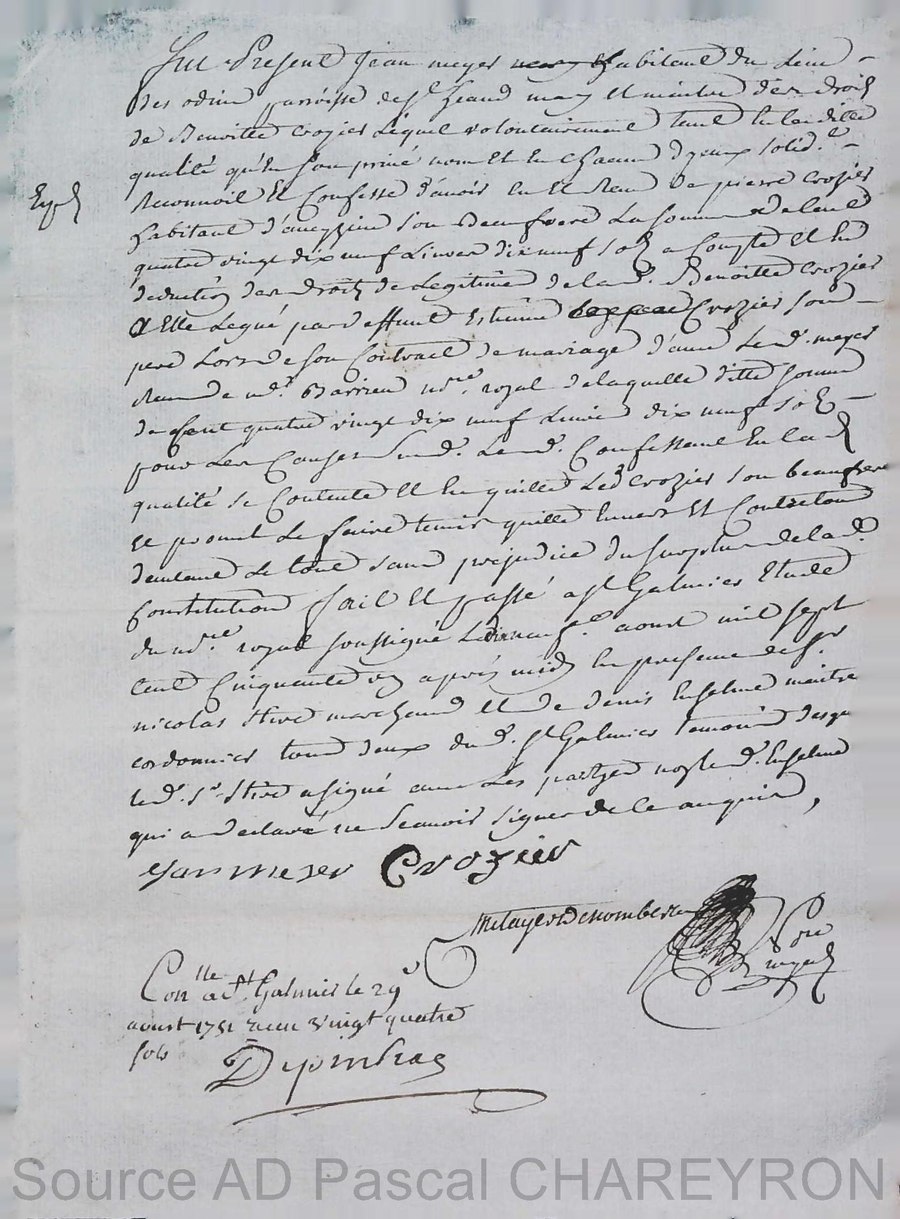 Fut Present Jean meyer habitant du Lieu
des odin parroisse de st heand mary et maitre des droits
de Benoitte Crozier Lequel volontairement tant en la ditte
qualité qu'en son privé nom et en chacun d'yceux solid.e
Reconnoit et Confesse d'avoir eu et Receu de pierre Crozier
Expd
habitant d'aveyzieu son Beaufrere La somme de Cent
quatre vingt dix neuf Livres dix neuf sols a Compte et en
deduction des droits de Legitime de lad. Benoitte Crozier
a Elle Legué par deffunt Estienne Crozier son
pere Lors de son Contract de mariage d'avec Led. meyer
Receu de me. Barrieu nore. royal de laquelle ditte somme
de Cent quatre vingt dix neuf Livres dix neuf sols
pour Les Causes sud. Led. Confessant En lad
qualité se Contente et en quitte Led Crozier son beaufrere
et promet Le faire tenir quitte Envers Et Contre tous
d'autant Le tout sans prejudice du surplus de lad.
Constitution fait et passé a st Galmier Etude
du nore. royal soussigné Le aoust mil sept
Cent Cinquante un après midy En presence de sr
nicolas Stive marchand et de denis Enselme maitre
cordonnier tous deux du d. st Galmier temoins
led. sr. Stive a signé avec Les parties non led. Enselme
qui a declaré ne scavoir signer de ce enquis,
Jan meyer Crozier
nore
royal
Conlle a st. Galmier le 29
aoust 1751 receu vingt quatre
sols
Source AD Pascal CHAREYRON